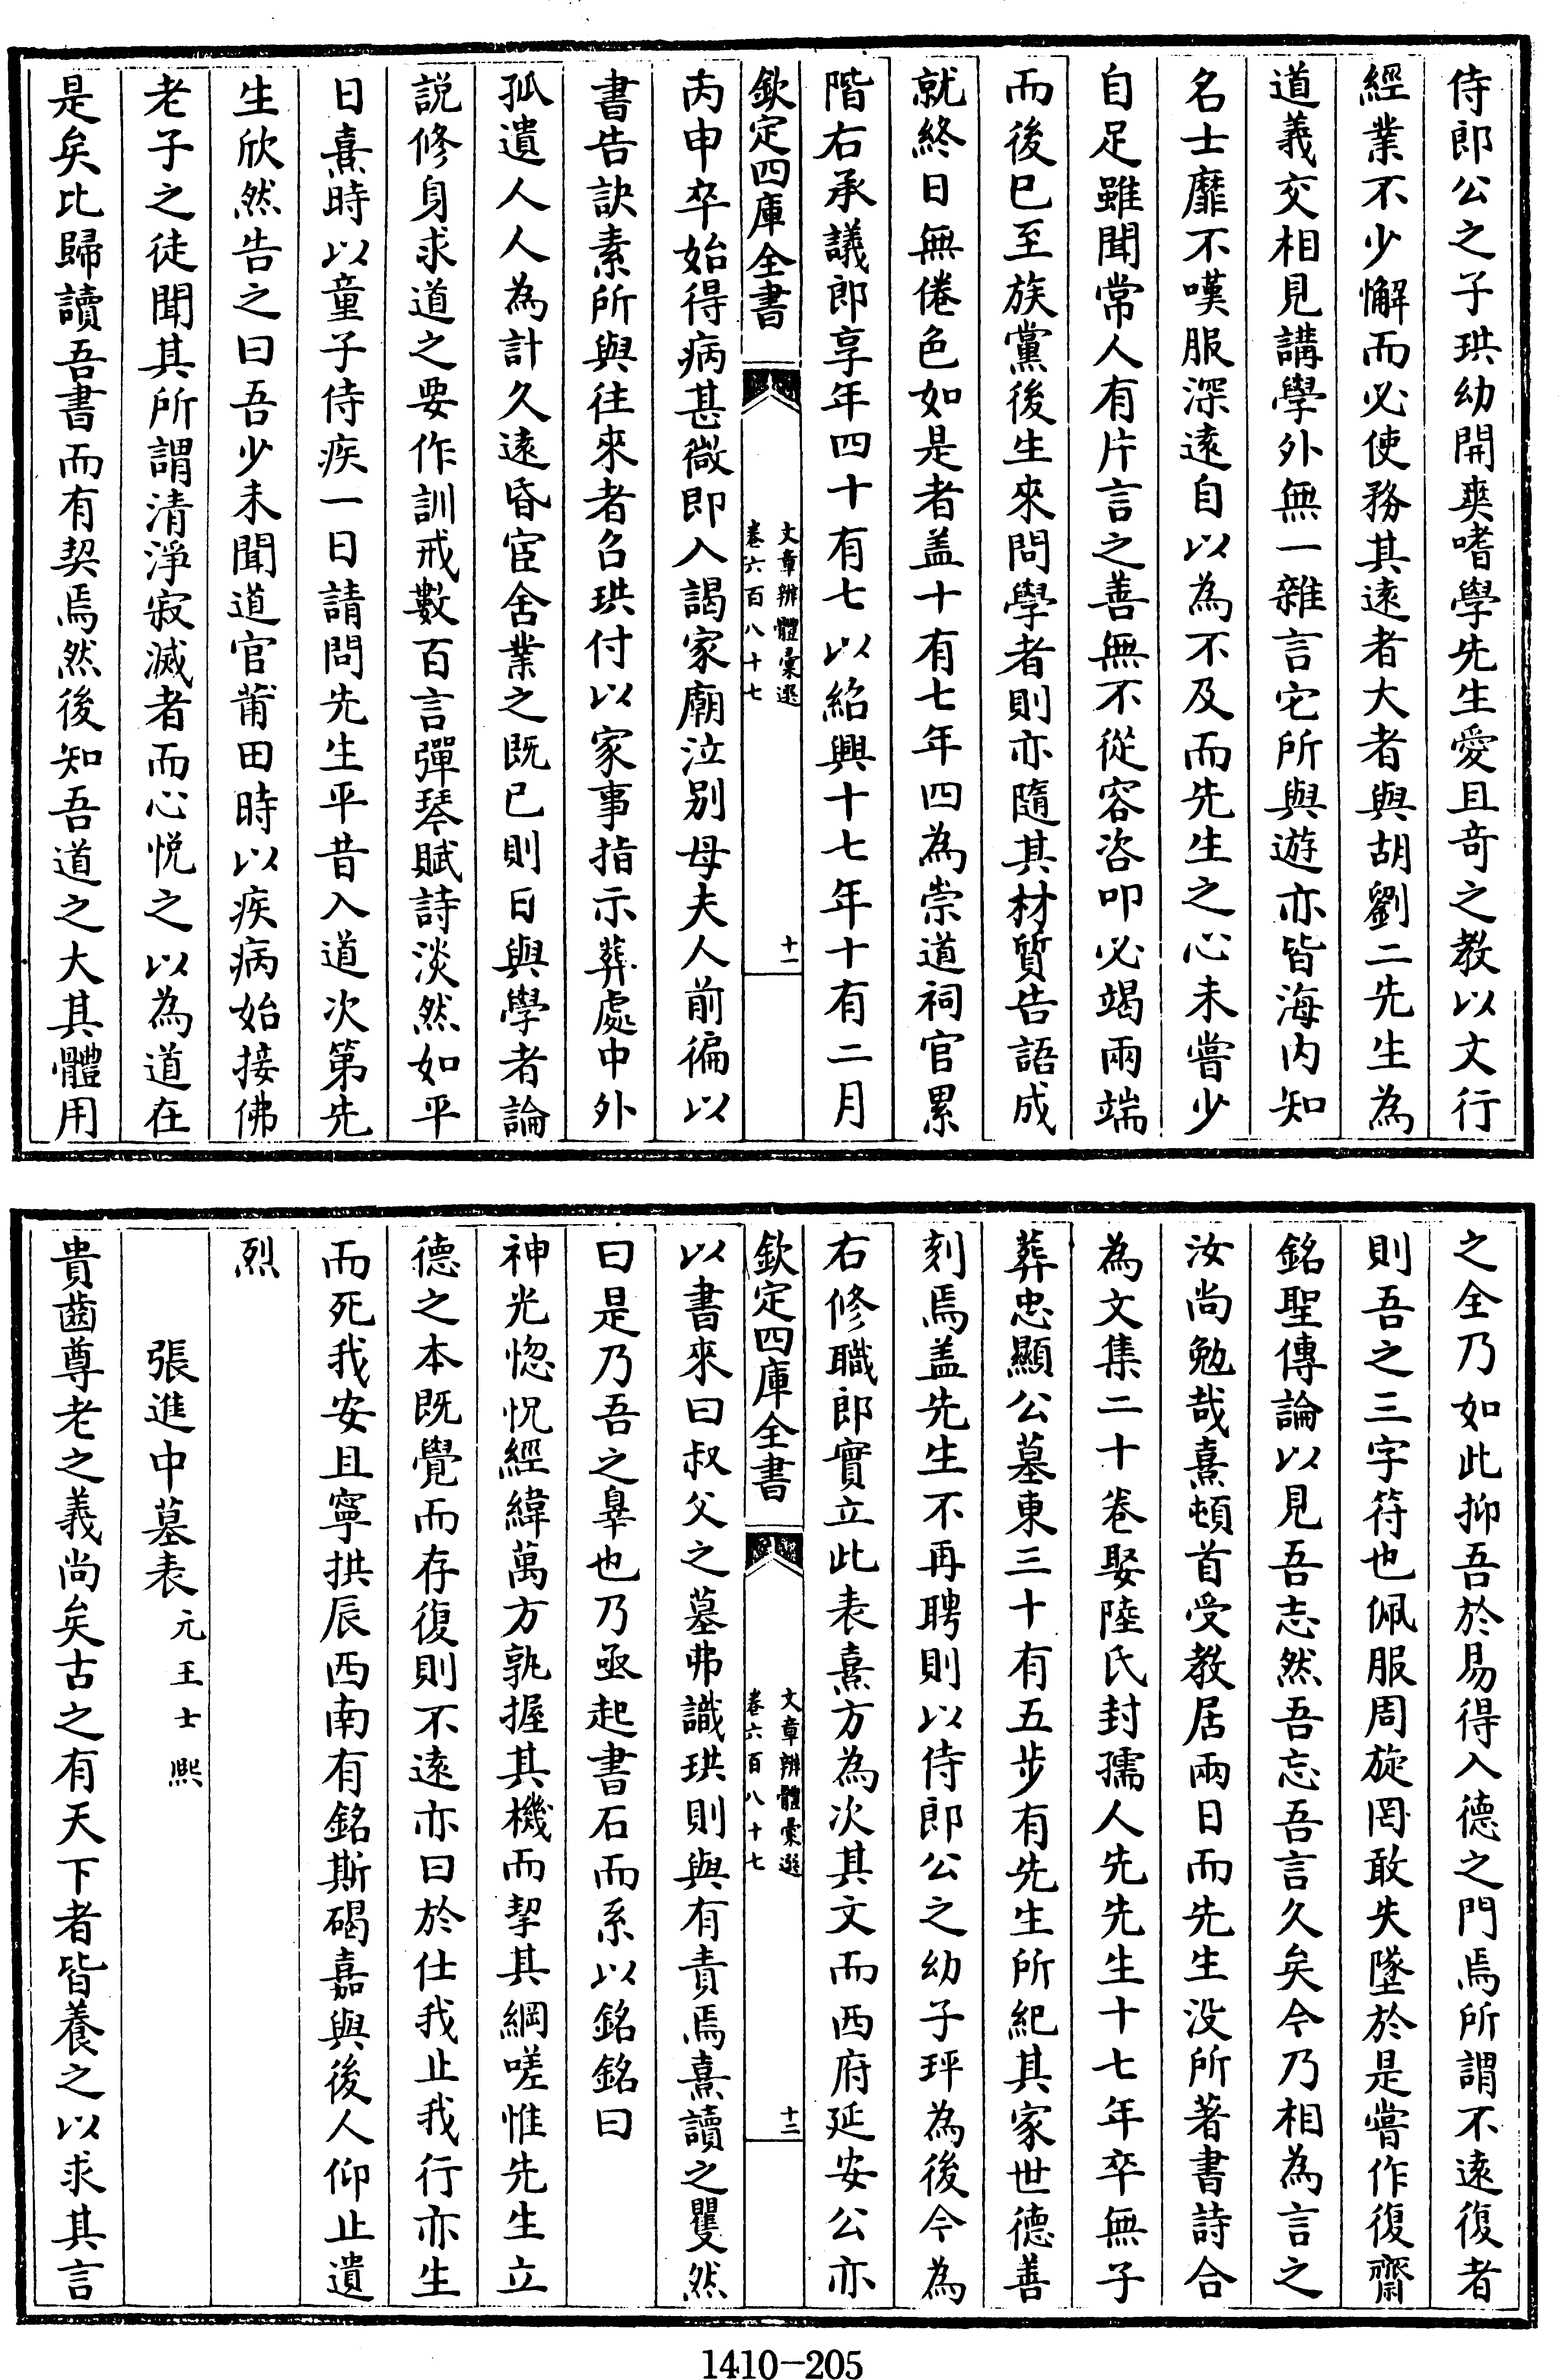 侍郎公之子珙幼開爽嗜學先生愛且竒之教以文行
經業不少懈而必使務其遠者大者與胡劉二先生為
道義交相見講學外無一雜言它所與遊亦皆海内知
名士靡不嘆服深遠自以為不及而先生之心未嘗少
自足雖聞常人有片言之善無不從容咨叩必竭兩端
而後已至族黨後生來問學者則亦隨其材質告語成
就終日無倦色如是者盖十有七年四為崇道祠官累
階右承議郎享年四十有七以紹興十七年十有二月
欽定四庫全書
文章辨體彚選
卷六百八十七
十一
丙申卒始得病甚微即入謁家廟泣别母夫人前徧以
書告訣素所與往來者召珙付以家事指示葬處中外
孤遺人人為計久遠昏宦舍業之既已則日與學者論
説修身求道之要作訓戒數百言彈琴賦詩淡然如平
日熹時以童子侍疾一日請問先生平昔入道次第先
生欣然告之曰吾少未聞道官莆田時以疾病始接佛
老子之徒聞其所謂清淨寂滅者而心悦之以為道在
是矣比歸讀吾書而有契焉然後知吾道之大其體用
之全乃如此抑吾於易得入德之門焉所謂不遠復者
則吾之三字符也佩服周旋罔敢失墜於是嘗作復齋
銘聖傳論以見吾志然吾忘吾言久矣今乃相為言之
汝尚勉哉熹頓首受教居兩日而先生没所著書詩合
為文集二十卷娶陸氏封孺人先先生十七年卒無子
葬忠顯公墓東三十有五步有先生所紀其家世德善
刻焉盖先生不再聘則以侍郎公之幼子玶為後今為
右修職郎實立此表熹方為次其文而西府延安公亦
欽定四庫全書
文章辨體彚選
卷六百八十七
十二
以書來曰叔父之墓弗識珙則與有責焉熹讀之瞿然
曰是乃吾之辠也乃亟起書石而系以銘銘曰
神光惚怳經緯萬方孰握其機而挈其綱嗟惟先生立
德之本既覺而存復則不遠亦曰於仕我止我行亦生
而死我安且寧拱辰西南有銘斯碣嘉與後人仰止遺
烈
張進中墓表元王士熙
貴齒尊老之義尚矣古之有天下者皆養之以求其言
1410-205